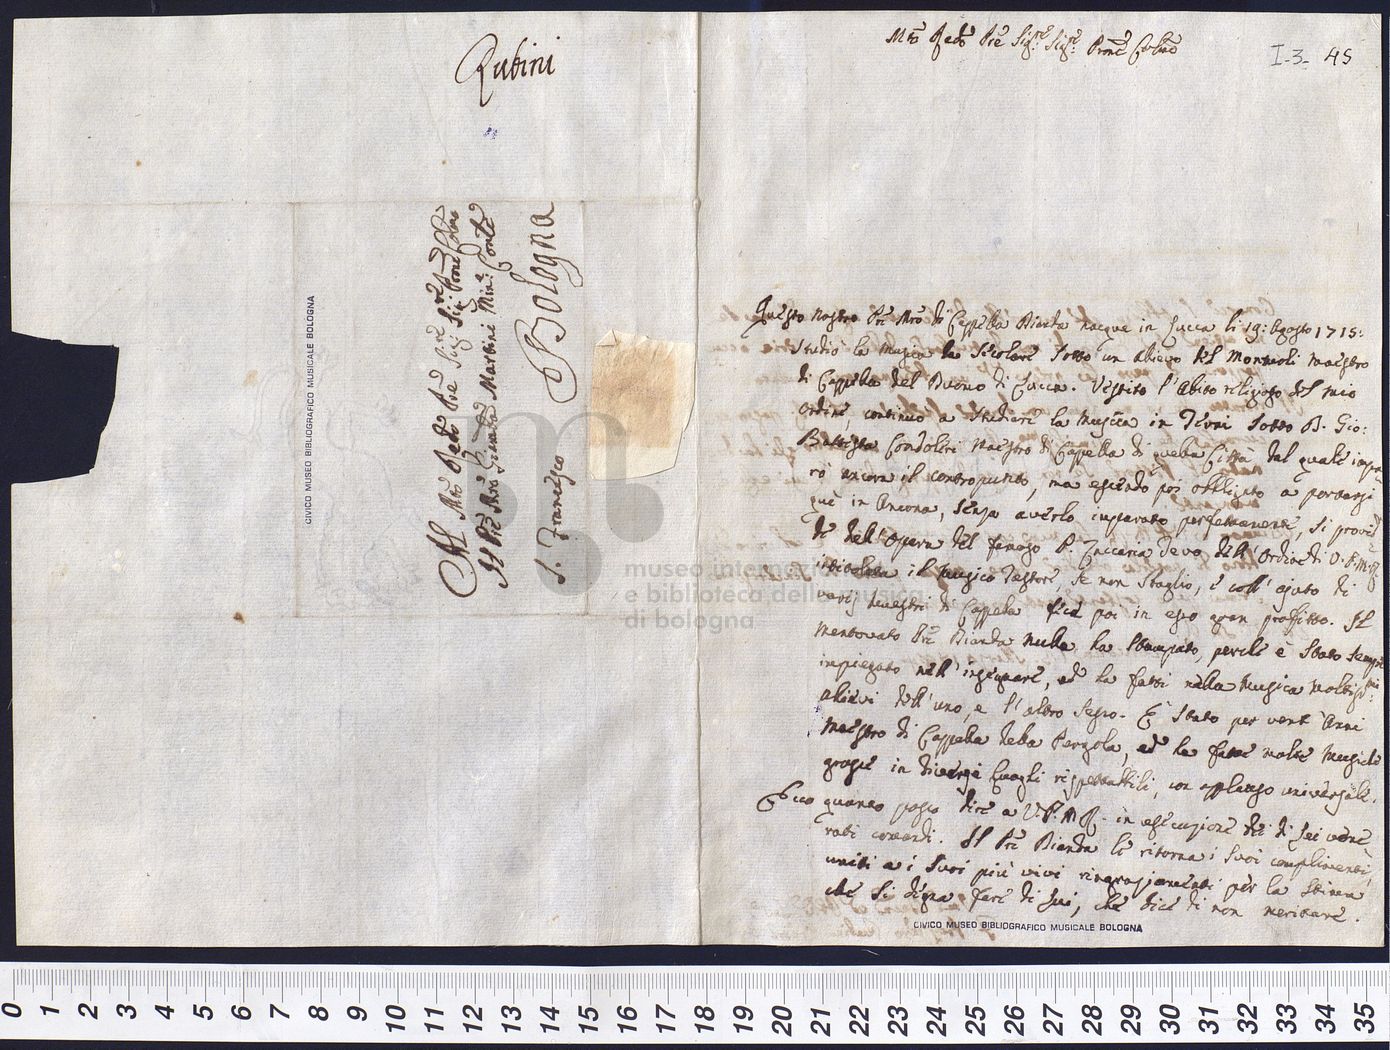 Rubini
Al Mto Redo Pre Sigr Sigr Prone Colmo
Il Pre Mro Giamba Martini Min. Conle
Bologna
S. Francesco
CIVICO MUSEO BIBLIOGRAFICO MUSICALE BOLOGNA
museo internazionale
e biblioteca della musica
di bologna
Mto Redo Pre Sigre Sigre Prone Colmo
I-3- 45
Questo nostro Pre Mro di Cappella Bianda nacque in Lucca li 19: Agosto 1715:
Studiò la musica da Secolare sotto un alievo del Montuoli maestro
di Cappella del Duomo di Lucca. Vestito l'abito religioso del mio
ordine, continuò a studiare la musica in Terni sotto D. Gio:
Battista Condoleri Maestro di Cappella di quella Città dal quale impa
rò ancora il contropunto, ma essendo poi obbligato a portarsi
quì in Ancona, senza averlo imparato perfettamente, si provid
de dell'opera del famoso P. Zaccaria Tevo, dell'Ordine di
intitolata il Musico Testore, se non sbaglio, e coll' ajuto di
varj Maestri di Cappella fece poi in esso gran proffitto. Il
mentovato Pre Bianda nulla ha stampato, perchè è stato sempre
impiegato nell'insegnare, ed ha fatti nella musica moltissi:mi
alievi dell'uno, e l'altro sesso. È stato per venti Anni
Maestro di Cappella della Pergola, ed ha fatte molte musiche
grosse in diversi luoghi rispettabili, con applauso universale.
Ecco quanto posso dire a V. P. M. R. in esecuzione dei di Lei vene
rati comandi. Il Pre Bianda Le ritorna i suoi complimenti,
uniti a i suoi più vivi ringraziamenti per la stima
che si degna fare di lui, che dice di non meritare.
CIVICO MUSEO BIBLIOGRAFICO MUSICALE BOLOGNA
0 1 2 3 4 5 6 7 8 9 10 11 12 13 14 15 16 17 18 19 20 21 22 23 24 25 26 27 28 29 30 31 32 33 34 35